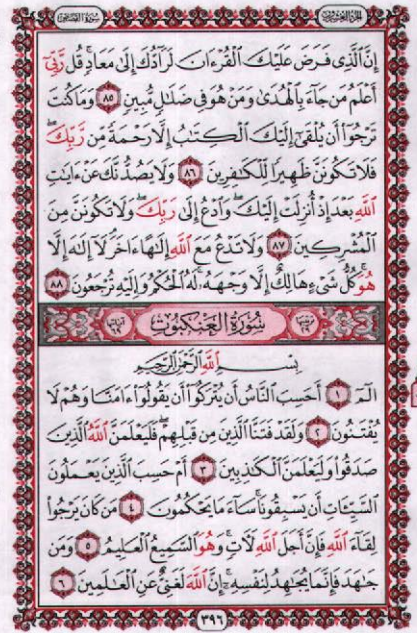 الجزء العشرون
سورة القصص
إِنَّ ٱلَّذِى فَرَضَ عَلَيْكَ ٱلْقُرْءَانَ لَرَآدُّكَ إِلَىٰ مَعَادٍ قُل رَّبِّىٓ
أَعْلَمُ مَن جَآءَ بِٱلْهُدَىٰ وَمَنْ هُوَ فِى ضَلَٰلٍ مُّبِينٍ ٨٥ وَمَا كُنتَ
تَرْجُوٓا۟ أَن يُلْقَىٰٓ إِلَيْكَ ٱلْكِتَٰبُ إِلَّا رَحْمَةً مِّن رَّبِّكَ
فَلَا تَكُونَنَّ ظَهِيرًا لِّلْكَٰفِرِينَ ٨٦ وَلَا يَصُدُّنَّكَ عَنْ ءَايَٰتِ
ٱللَّهِ بَعْدَ إِذْ أُنزِلَتْ إِلَيْكَ وَٱدْعُ إِلَىٰ رَبِّكَ وَلَا تَكُونَنَّ مِنَ
ٱلْمُشْرِكِينَ ٨٧ وَلَا تَدْعُ مَعَ ٱللَّهِ إِلَٰهًا ءَاخَرَ لَآ إِلَٰهَ إِلَّا
هُوَ كُلُّ شَىْءٍ هَالِكٌ إِلَّا وَجْهَهُۥ لَهُ ٱلْحُكْمُ وَإِلَيْهِ تُرْجَعُونَ ٨٨
سُورَةُ الْعَنْكَبُوتِ
بِسْمِ ٱللَّهِ ٱلرَّحْمَٰنِ ٱلرَّحِيمِ
الٓمٓ ١ أَحَسِبَ ٱلنَّاسُ أَن يُتْرَكُوٓا۟ أَن يَقُولُوٓا۟ ءَامَنَّا وَهُمْ لَا
يُفْتَنُونَ ٢ وَلَقَدْ فَتَنَّا ٱلَّذِينَ مِن قَبْلِهِمْ فَلَيَعْلَمَنَّ ٱللَّهُ ٱلَّذِينَ
صَدَقُوا۟ وَلَيَعْلَمَنَّ ٱلْكَٰذِبِينَ ٣ أَمْ حَسِبَ ٱلَّذِينَ يَعْمَلُونَ
ٱلسَّيِّـَٔاتِ أَن يَسْبِقُونَا سَآءَ مَا يَحْكُمُونَ ٤ مَن كَانَ يَرْجُوا۟
لِقَآءَ ٱللَّهِ فَإِنَّ أَجَلَ ٱللَّهِ لَءَاتٍ وَهُوَ ٱلسَّمِيعُ ٱلْعَلِيمُ ٥ وَمَن
جَٰهَدَ فَإِنَّمَا يُجَٰهِدُ لِنَفْسِهِۦٓ إِنَّ ٱللَّهَ لَغَنِىٌّ عَنِ ٱلْعَٰلَمِينَ ٦
٣٩٦